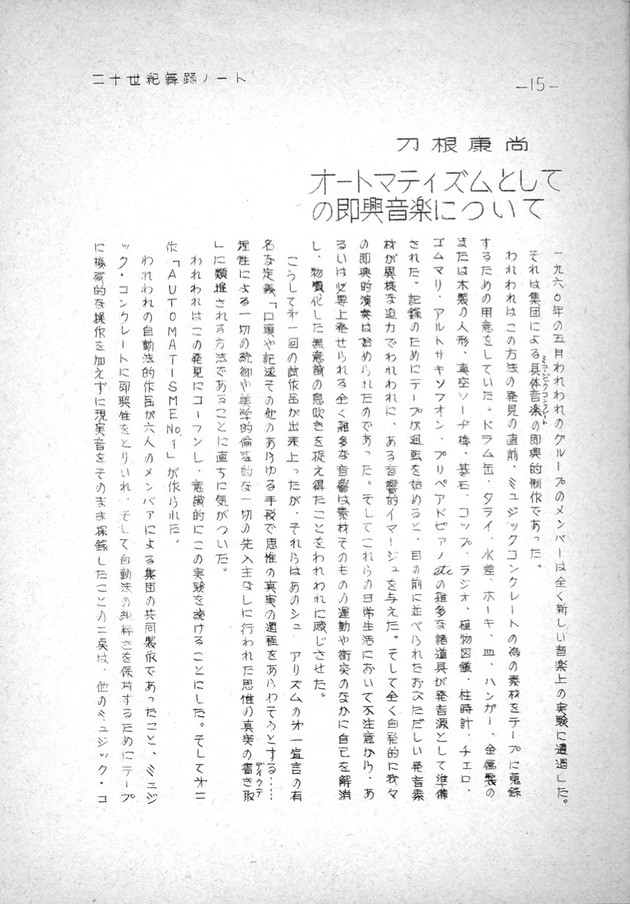 二十世紀舞踊ノート
—15—
刀根康尚
オートマティズムとして
の即興音楽について
一九六〇年の五月われわれのグループのメンバーは全く新しい音楽上の実験に遭遇した。
それは集団による具体音楽の即興的制作であった。
ミュージックコンクレート
われわれはこの方法の発見の直前、ミュジックコンクレートの為の素材をテープに蒐録
するための用意をしていた。ドラム缶、タライ、水差、ホーキ、皿、ハンガー、金属製の
または木製の人形、真空ソージ機、碁石、コップ、ラジオ、植物図鑑、柱時計、チェロ、
ゴムマリ、アルトサキソフォン、プリペアドピアノetcの雑多な諸道具が発音源として準備
された。記録のためにテープが廻転を始めると、目の前に並べられたおびただしい発音素
材が異様な迫力でわれわれに、ある音響的イマージュを与えた。そして全く自発的に我々
の即興的演奏は始められたのであった。そしてこれらの日常生活において不注意から、あ
るいは必要上発せられる全く雑多な音響は素材そのものの運動や衝突のなかに自己を解消
し、物質化した無意識の息吹きを捉え得たことをわれわれに感じさせた。
こうして才一回の試作品が出来上ったが、それらはあのシュールアリズムの才一宣言の有
名な定義「口頭や記述その他のあらゆる手段で思惟の真実の過程をあらわそうとする……
理性による一切の統御や美学的倫理的な一切の先入主なしに行われた思惟の真実の書き取
ディクテ
」に類推される方法であることに直ちに気がついた。
われわれはこの発見にコーフンし、意識的にこの実験を続けることにした。そして才二
作「AUTOMATISME No.1」が作られた。
われわれの自動法的作品が六人のメンバァによる集団の共同製作であったこと、ミュジ
ック・コンクレートに即興性をとりいれ、そして自動法の純粋さを保持するためにテープ
に機械的な操作を加えずに現実音をそのまま採録したことの二点は、他のミュジック・コ